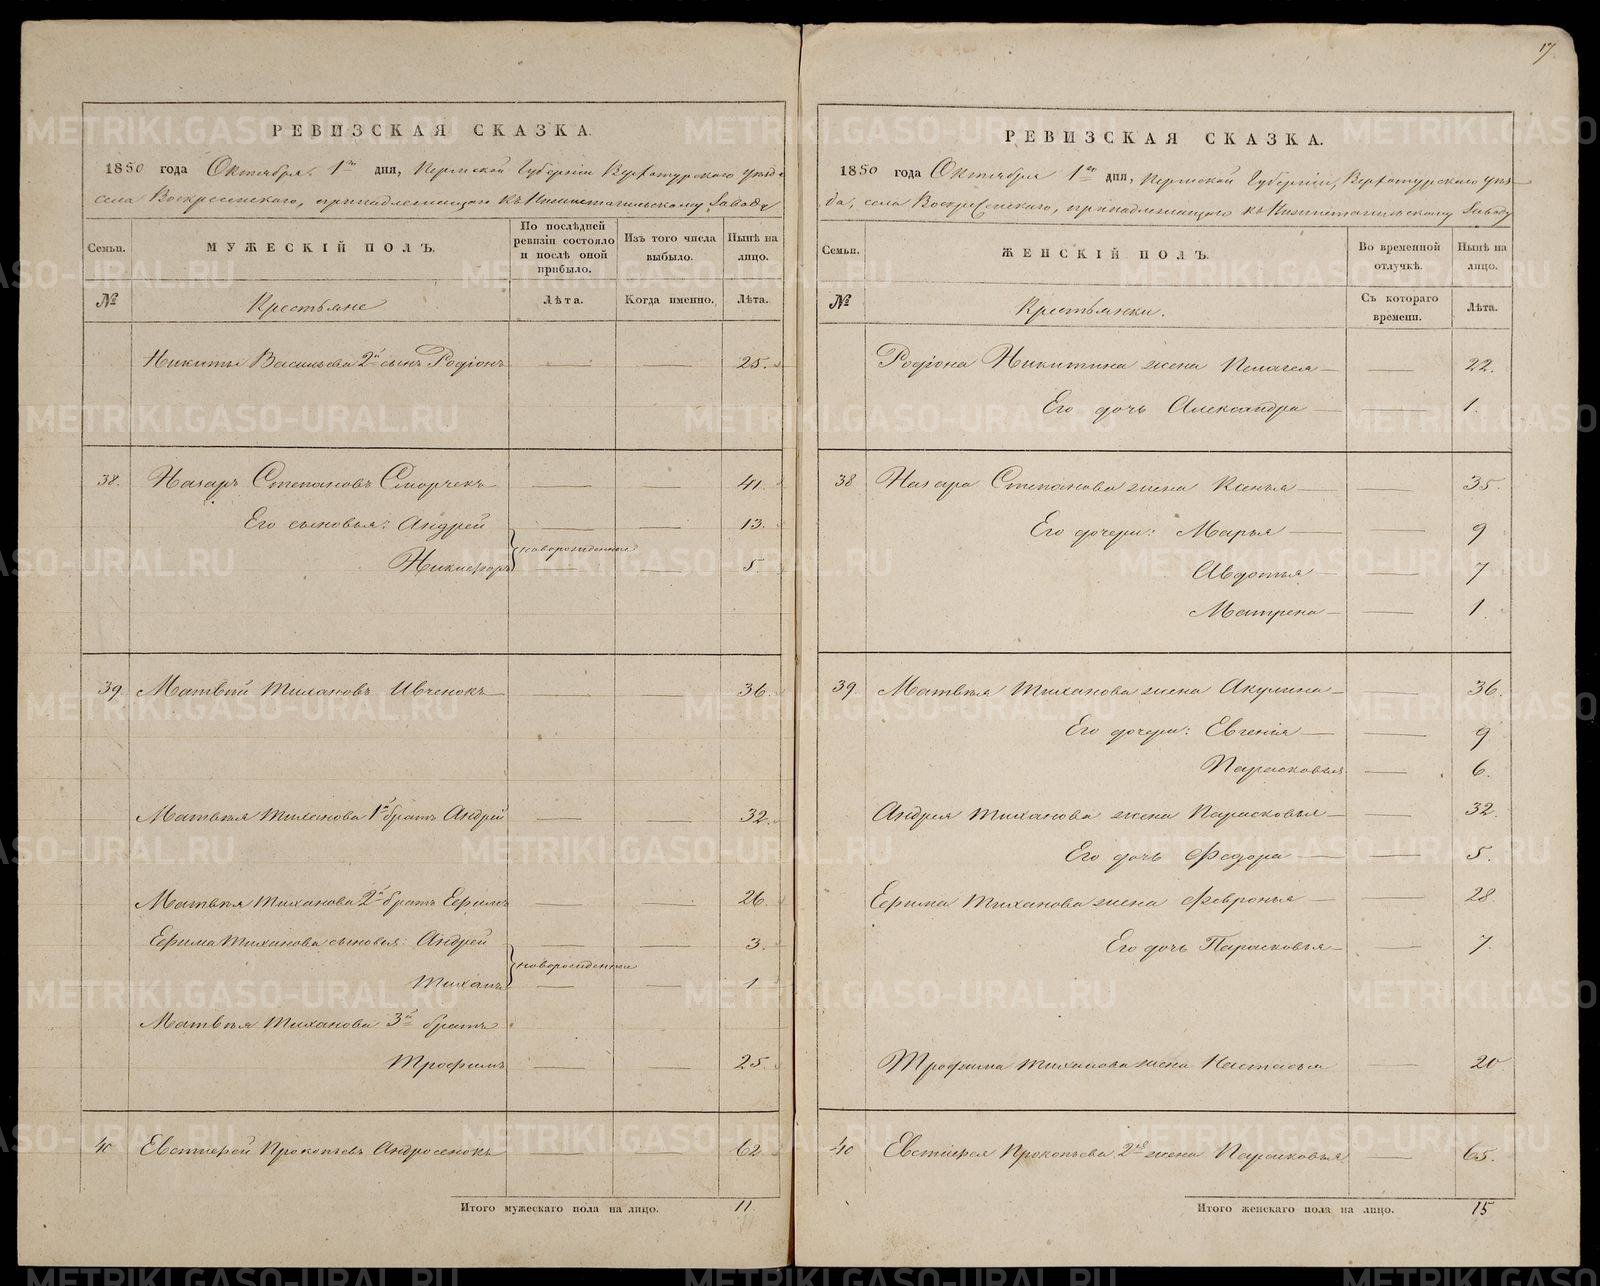 17
РЕВИЗСКАЯ СКАЗКА.
1850 года Октября 1го дня, Пермской Губернiи Верхотурскаго уѣзда
села Воскресенскаго, принадлежащаго къ Нижнетагильскому Заводу
Семьи. МУЖЕСКІЙ ПОЛЪ. По послѣдней ревизіи состояло и послѣ оной прибыло. Изъ того числа выбыло. Нынѣ на лицо.
№ Крестьяне Лѣта. Когда именно. Лѣта.
Никиты Васильева 2й сынъ Родіонъ — — 25.
38. Назаръ Степановъ Сморчекъ — — 41.
Его сыновья: Андрей — — 13.
новорожденные
Никифоръ — — 5
39. Матвѣй Тихановъ Ивченокъ — — 36.
Матвѣя Тиханова 1й братъ Андрей — — 32.
Матвѣя Тиханова 2й братъ Ефимъ — — 26.
Ефима Тиханова сыновья: Андрей — — 3.
новорожденные
Тиханъ — — 1
Матвѣя Тиханова 3й братъ
Трофимъ — — 25.
40 Евстифей Прокопьевъ Андросенокъ — — 62
Итого мужескаго пола на лицо. 11
РЕВИЗСКАЯ СКАЗКА.
1850 года Октября 1го дня, Пермской Губерніи, Верхотурскаго уѣз-
да, села Воскресенскаго, принадлежащаго къ Нижнетагильскому Заводу
Семьи. ЖЕНСКІЙ ПОЛЪ. Во временной отлучкѣ. Нынѣ на лицо.
№ Крестьянки. Съ котораго времени. Лѣта.
Родіона Никитина жена Пелагея — — 22.
Его дочь Александра — — 1.
38 Назара Степанова жена Ксенья — — 35.
Его дочери: Марья — — 9
Авдотья — — 7
Матрена — — 1.
39. Матвѣя Тиханова жена Акулина — — 36.
Его дочери: Евгенія — — 9
Парасковья — 6.
Андрея Тиханова жена Парасковья — — 32.
Его дочь Федора — — 5.
Ефима Тиханова жена Февронья — — 28
Его дочь Парасковья — — 7.
Трофима Тиханова жена Настасья — 20
40 Евстифея Прокопьева 2я жена Парасковья — 65.
Итого женскаго пола на лицо. 15
METRIKI.GASO-URAL.RU